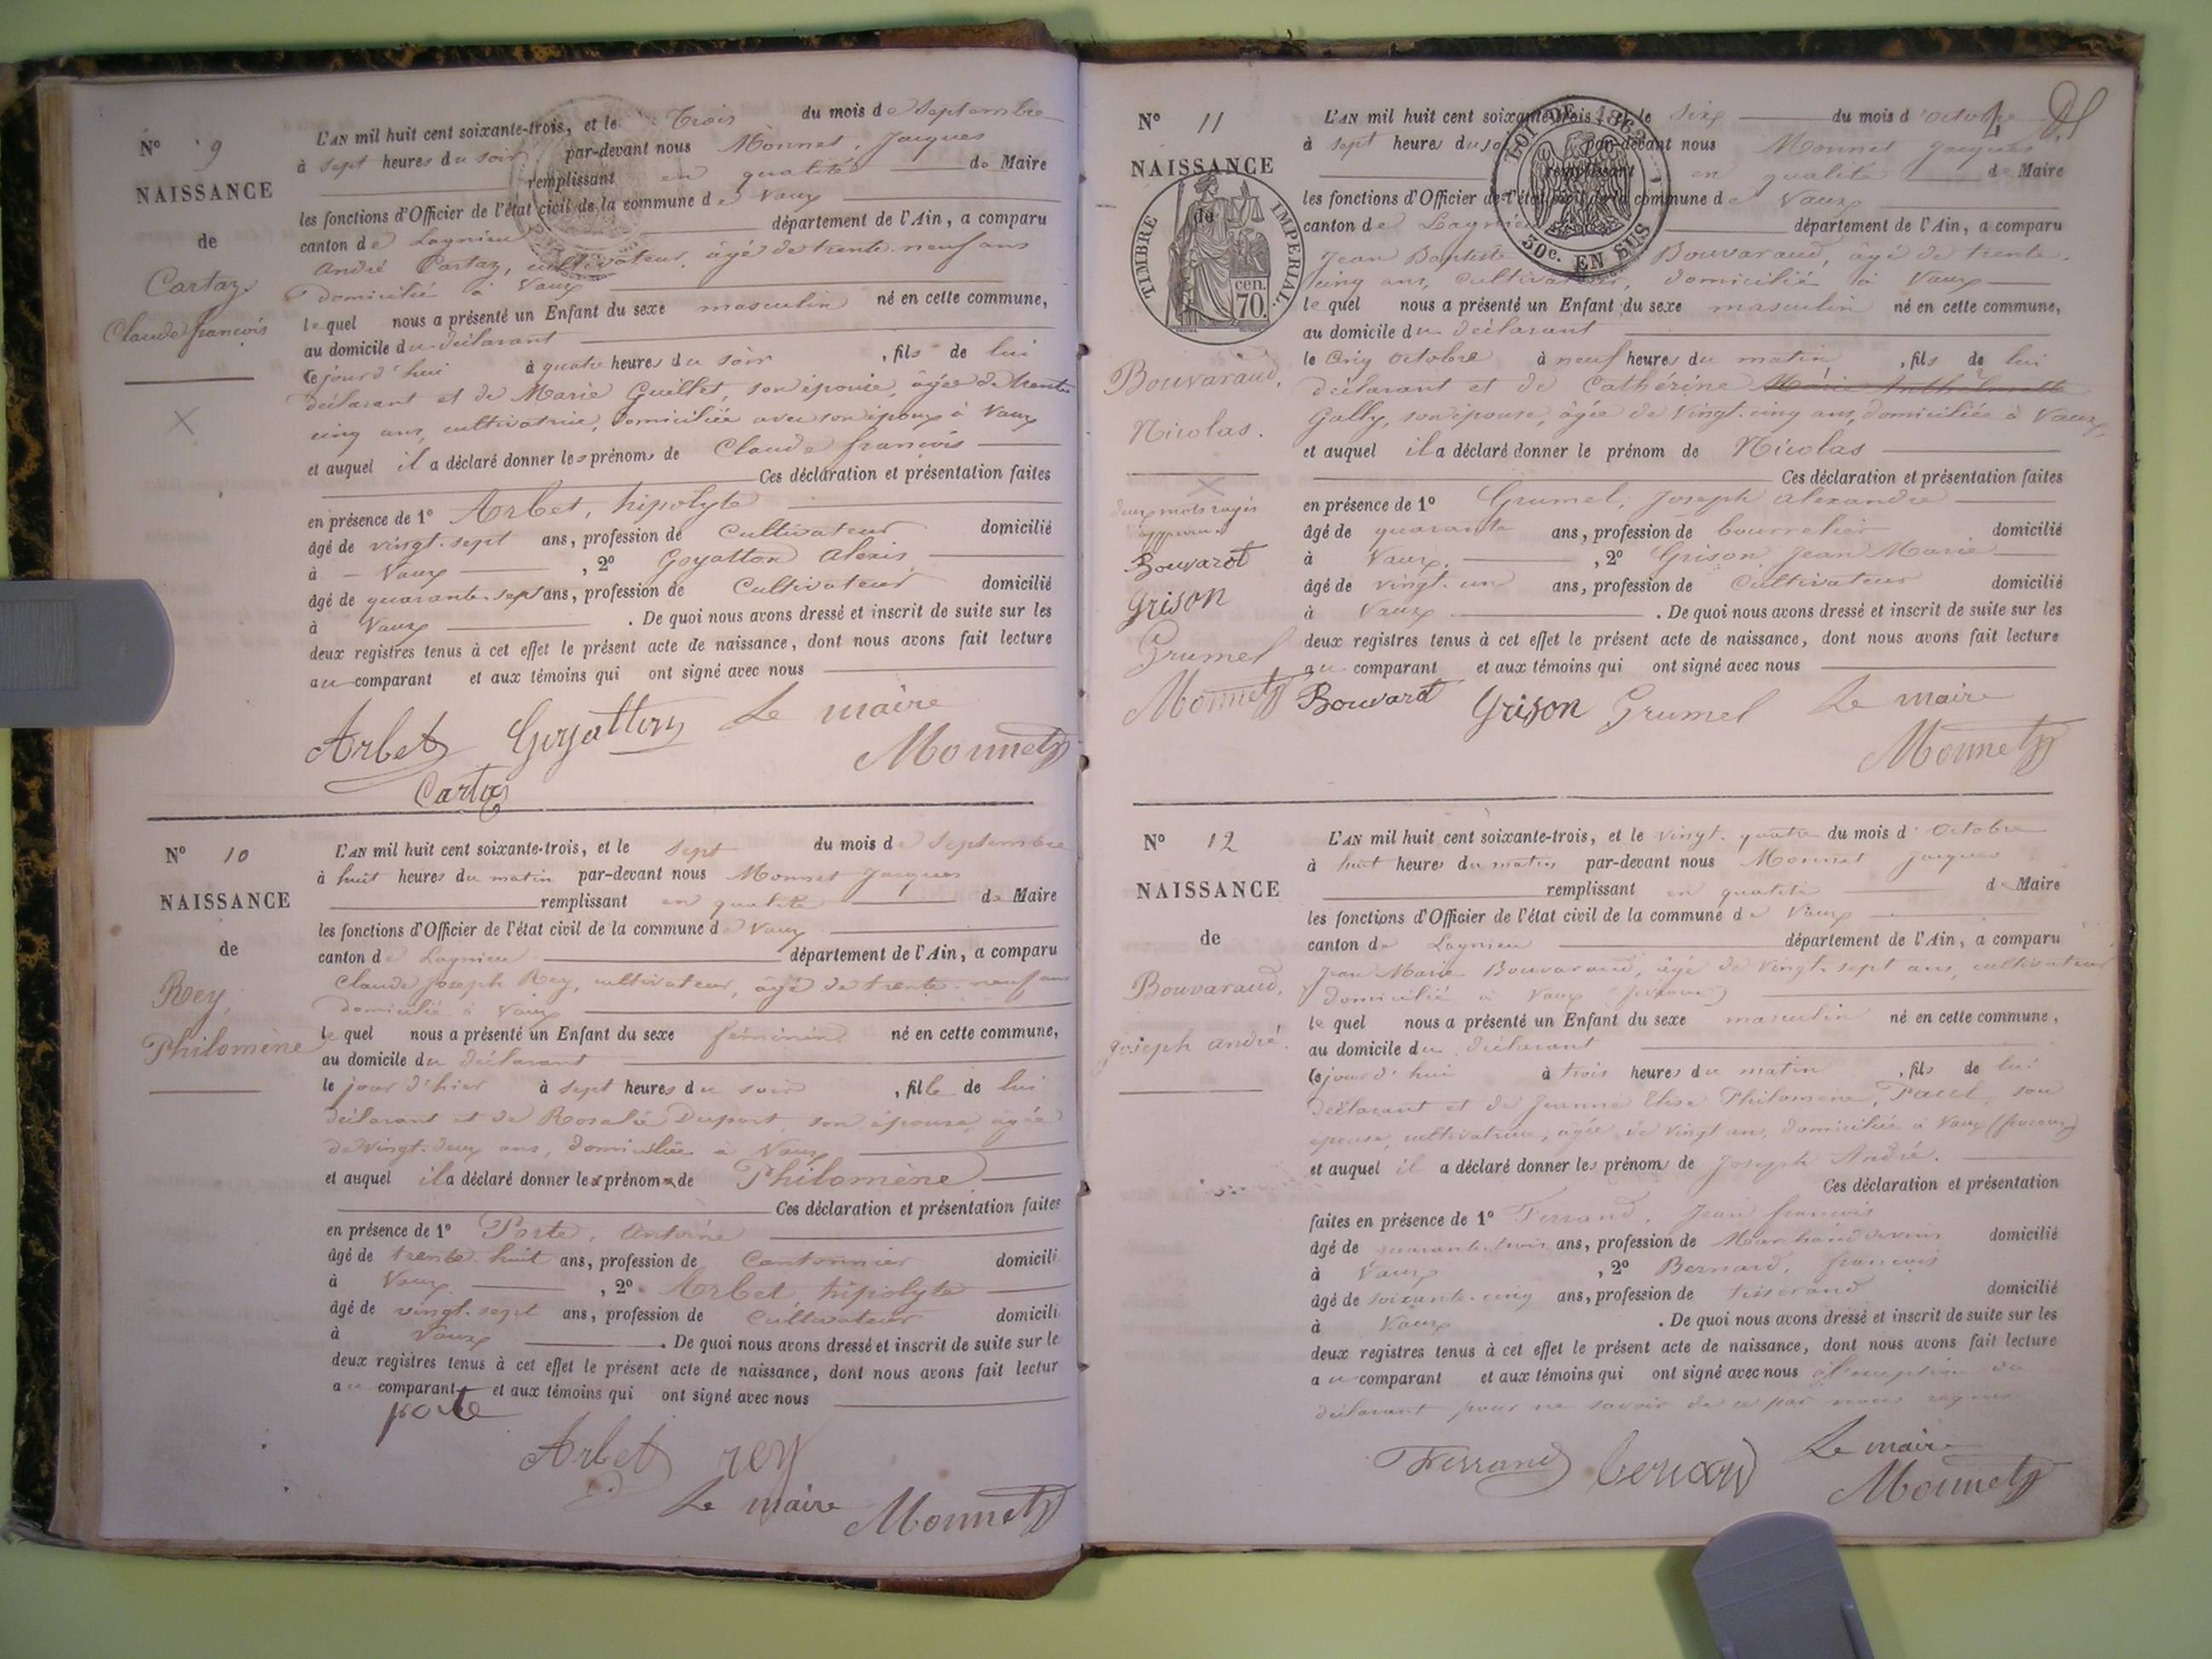 N° 9
NAISSANCE
de
Cartaz,
Claude françois
L'AN mil huit cent soixante-trois, et le trois du mois de Septembre
à sept heures du soir par-devant nous Monnet, Jacques
remplissant en qualité de Maire
les fonctions d'Officier de l'état civil de la commune de Vaux
canton de Lagnieu département de l'Ain, a comparu
André Cartaz, cultivateur, âgé de trente-neuf ans
domicilié à Vaux
lequel nous a présenté un Enfant du sexe masculin né en cette commune,
au domicile du déclarant
cejourd'hui à quatre heures du soir, fils de lui
déclarant et de Marie Guillet, son épouse, âgée de trente
cinq ans, cultivatrice, domiciliée avec son époux à Vaux
et auquel il a déclaré donner les prénoms de Claude françois
Ces déclaration et présentation faites
en présence de 1° Arbet, hipolyte
âgé de vingt-sept ans, profession de Cultivateur domicilié
à Vaux, 2° Goyatton Alexis
âgé de quarante-sept ans, profession de Cultivateur domicilié
à Vaux. De quoi nous avons dressé et inscrit de suite sur les
deux registres tenus à cet effet le présent acte de naissance, dont nous avons fait lecture
au comparant et aux témoins qui ont signé avec nous
Arbet Goyatton Le maire
Monnet
Cartaz
N° 10
NAISSANCE
de
Rey,
Philomène
L'AN mil huit cent soixante-trois, et le sept du mois de Septembre
à huit heures du matin par-devant nous Monnet Jacques
remplissant en qualité de Maire
les fonctions d'Officier de l'état civil de la commune de Vaux
canton de Lagnieu département de l'Ain, a comparu
Claude Joseph Rey, cultivateur, âgé de trente-neuf ans
domicilié à Vaux
lequel nous a présenté un Enfant du sexe féminin né en cette commune,
au domicile du déclarant
le jour d'hier à sept heures du soir, fille de lui
déclarant et de Rosalie Duport, son épouse, âgée
de vingt-deux ans, domiciliée à Vaux
et auquel il a déclaré donner les prénoms de Philomène
Ces déclaration et présentation faites
en présence de 1° Porte, Antoine
âgé de trente-huit ans, profession de Cantonnier domicili
à Vaux, 2° Arbet, hipolyte
âgé de vingt-sept ans, profession de Cultivateur domicili
à Vaux. De quoi nous avons dressé et inscrit de suite sur le
deux registres tenus à cet effet le présent acte de naissance, dont nous avons fait lectur
au comparant et aux témoins qui ont signé avec nous
porte
Arbet rey
Le maire Monnet
4
N° 11
NAISSANCE
de
TIMBRE IMPÉRIAL
70 cen.
LOI DE 1862
30c. EN SUS
Bouvaraud,
Nicolas.
deux mots rayés
approuvés
Bouvarot
Grison
Grumel
Monnet
L'AN mil huit cent soixante-trois, et le Six du mois d'octobre
à sept heures du soir par-devant nous Monnet Jacques
remplissant en qualité de Maire
les fonctions d'Officier de l'état civil de la commune de Vaux
canton de Lagnieu département de l'Ain, a comparu
Jean Baptiste Bouvaraud, âgé de trente-
cinq ans, Cultivateur, domicilié à Vaux
lequel nous a présenté un Enfant du sexe masculin né en cette commune,
au domicile du déclarant
le Cinq octobre à neuf heures du matin, fils de lui
déclarant et de Cathérine Marie
Gally, son épouse, âgée de vingt-cinq ans, domiciliée à Vaux,
et auquel il a déclaré donner le prénom de Nicolas
Ces déclaration et présentation faites
en présence de 1° Grumel, Joseph Alexandre
âgé de quarante ans, profession de bourrelier domicilié
à Vaux, 2° Grison, Jean Marie
âgé de vingt-un ans, profession de Cultivateur domicilié
à Vaux. De quoi nous avons dressé et inscrit de suite sur les
deux registres tenus à cet effet le présent acte de naissance, dont nous avons fait lecture
au comparant et aux témoins qui ont signé avec nous
Bouvarot Grison Grumel Le maire
Monnet
N° 12
NAISSANCE
de
Bouvaraud,
Joseph andré.
L'AN mil huit cent soixante-trois, et le vingt-quatre du mois d'Octobre
à huit heures du matin par-devant nous Monnet Jacques
remplissant en qualité de Maire
les fonctions d'Officier de l'état civil de la commune de Vaux
canton de Lagnieu département de l'Ain, a comparu
Jean Marie Bouvaraud, âgé de vingt-sept ans, cultivateur
domicilié à Vaux
lequel nous a présenté un Enfant du sexe masculin né en cette commune,
au domicile du déclarant
cejourd'hui à trois heures du matin, fils de lui
déclarant et de Jeanne Elise Philomène, son
épouse, cultivatrice, âgée de vingt ans, domiciliée à Vaux
et auquel il a déclaré donner les prénoms de Joseph André.
Ces déclaration et présentation
faites en présence de 1° Ferrand, Jean françois
âgé de quarante-trois ans, profession de Marchand de vins domicilié
à Vaux, 2° Bernard, françois
âgé de soixante-cinq ans, profession de tisserand domicilié
à Vaux. De quoi nous avons dressé et inscrit de suite sur les
deux registres tenus à cet effet le présent acte de naissance, dont nous avons fait lecture
au comparant et aux témoins qui ont signé avec nous à l'exception du
déclarant pour ne savoir de ce par nous requis
Ferrand bernard Le maire
Monnet